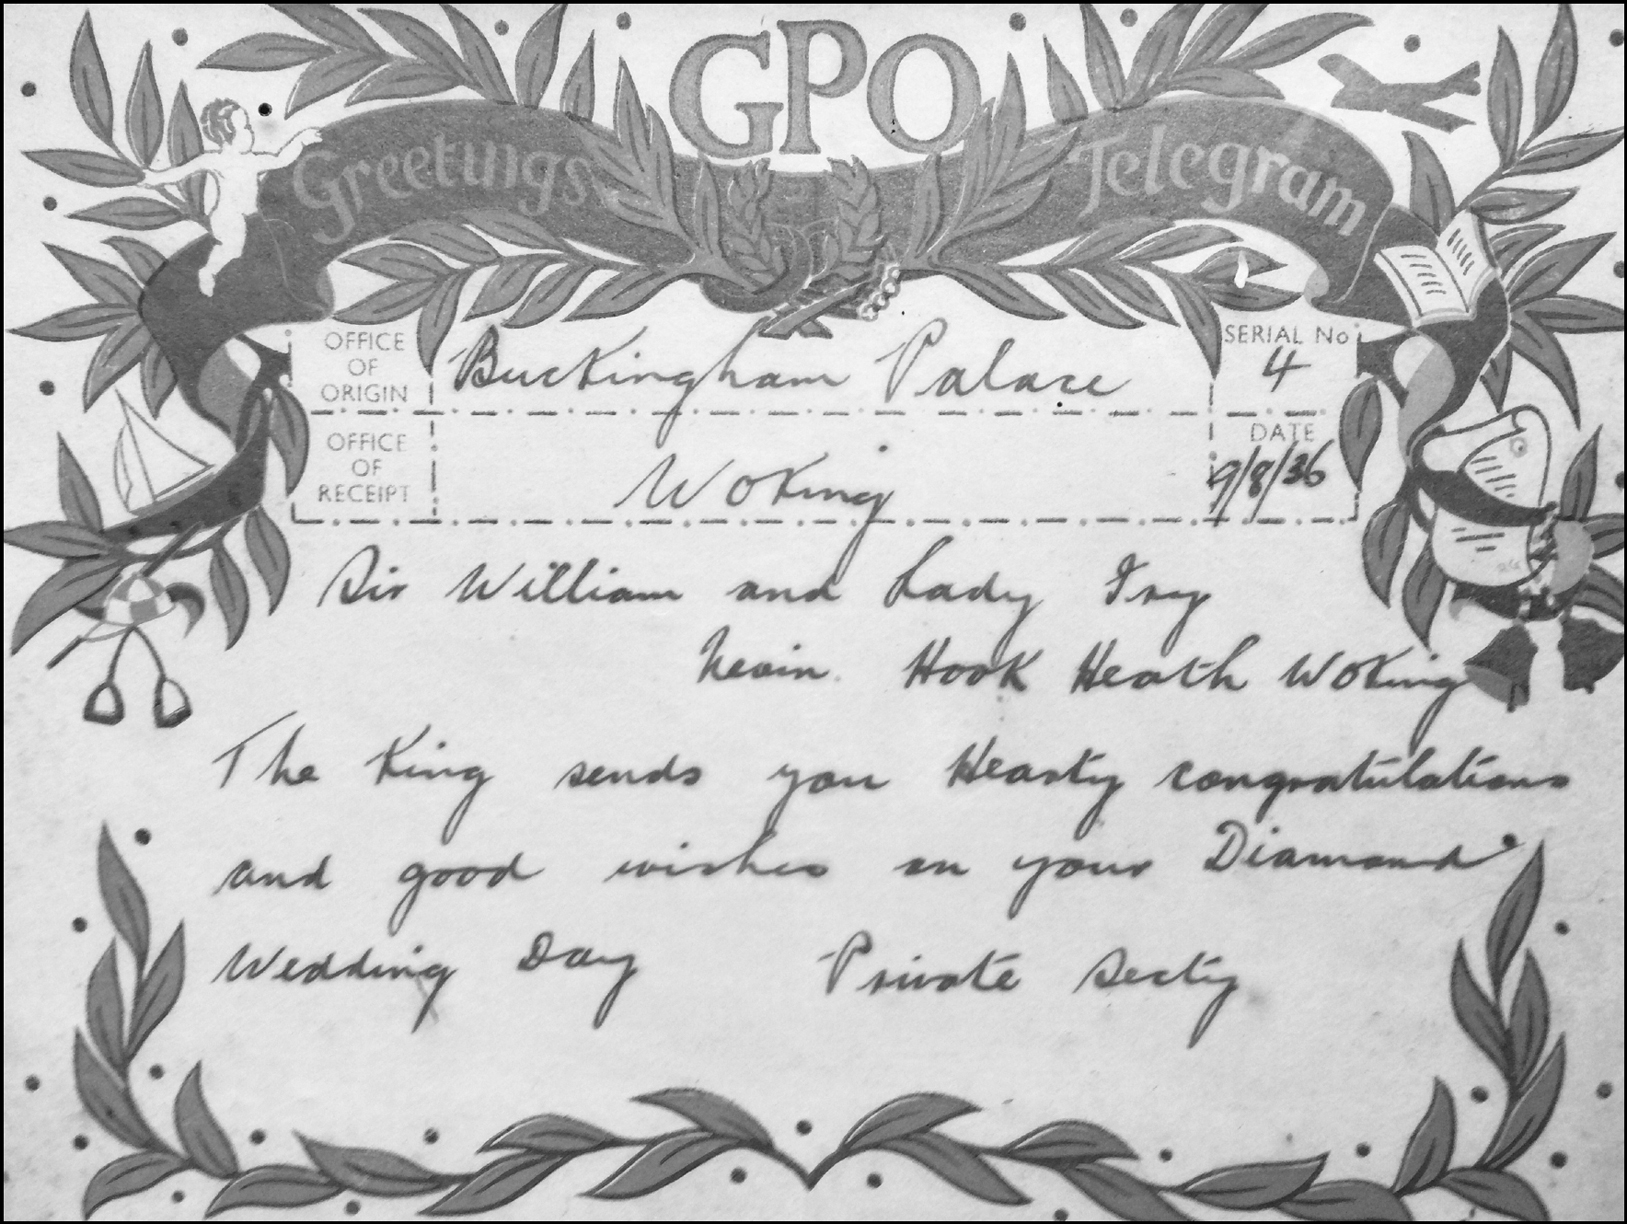 GPO
Greetings Telegram
OFFICE OF ORIGIN
Buckingham Palace
SERIAL No
4
OFFICE OF RECEIPT
Woking
DATE
9/8/36
Sir William and Lady Ivy
Hook Heath Woking
The King sends you Hearty congratulations
and good wishes on your Diamond
Wedding Day Private Secty